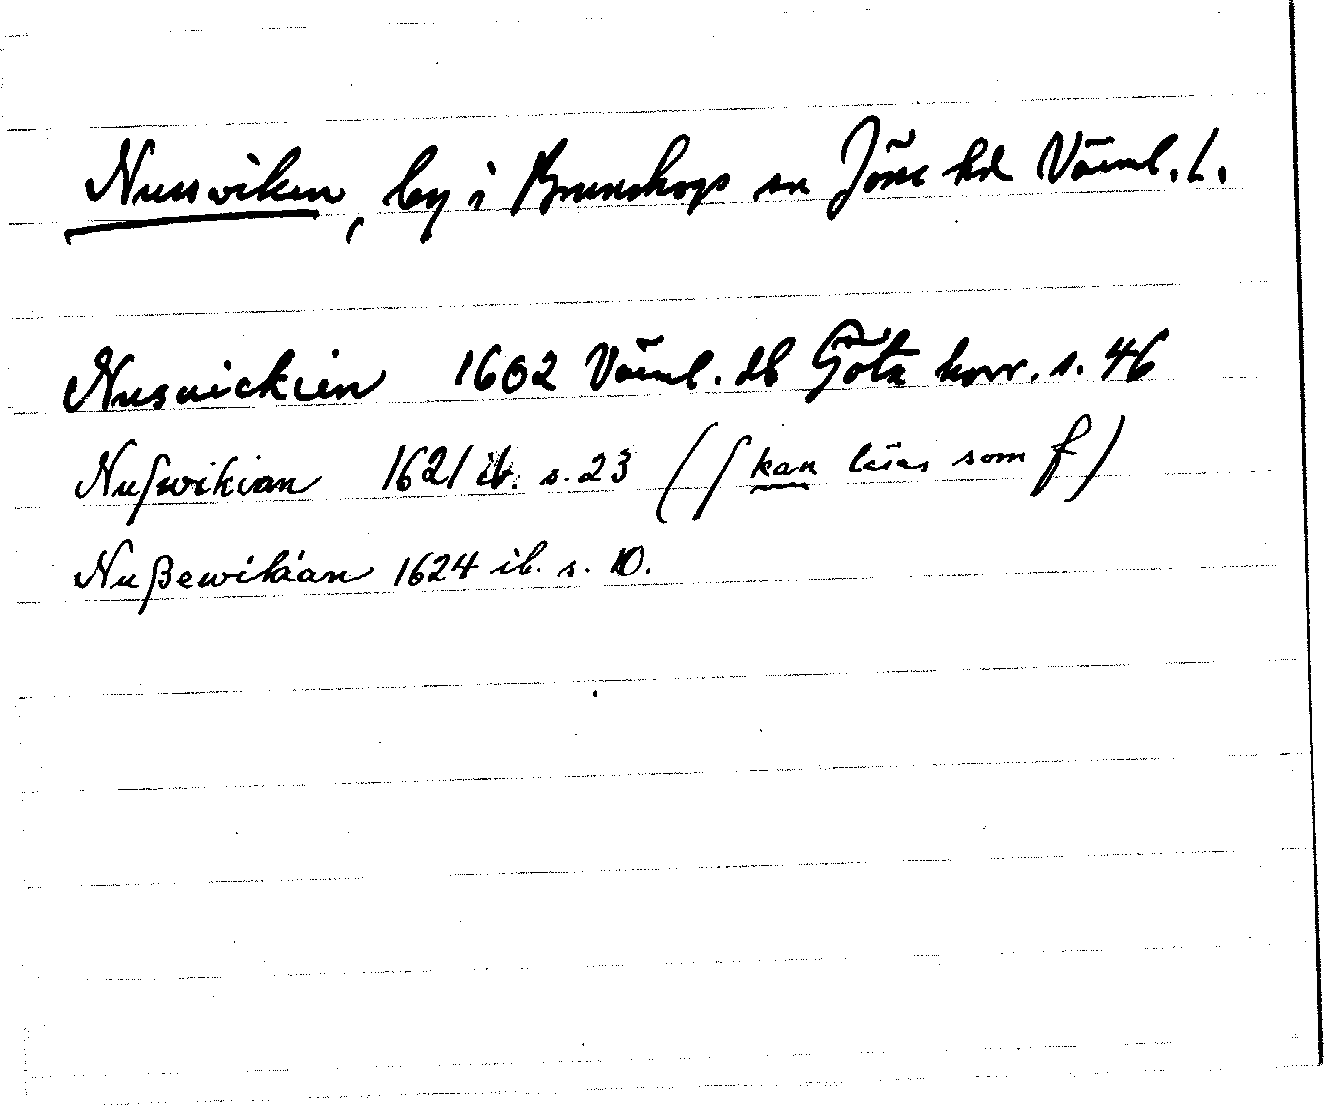 Nussviken, by i Brunskogs sn Jösse hd Värml. l.
Nusvickien 1602 Värml. db Göta hovr. s. 46
Nuſwikian 1621 ib. s. 23 (ſ kan läsas som f)
Nußewikian 1624 ib. s. 10.